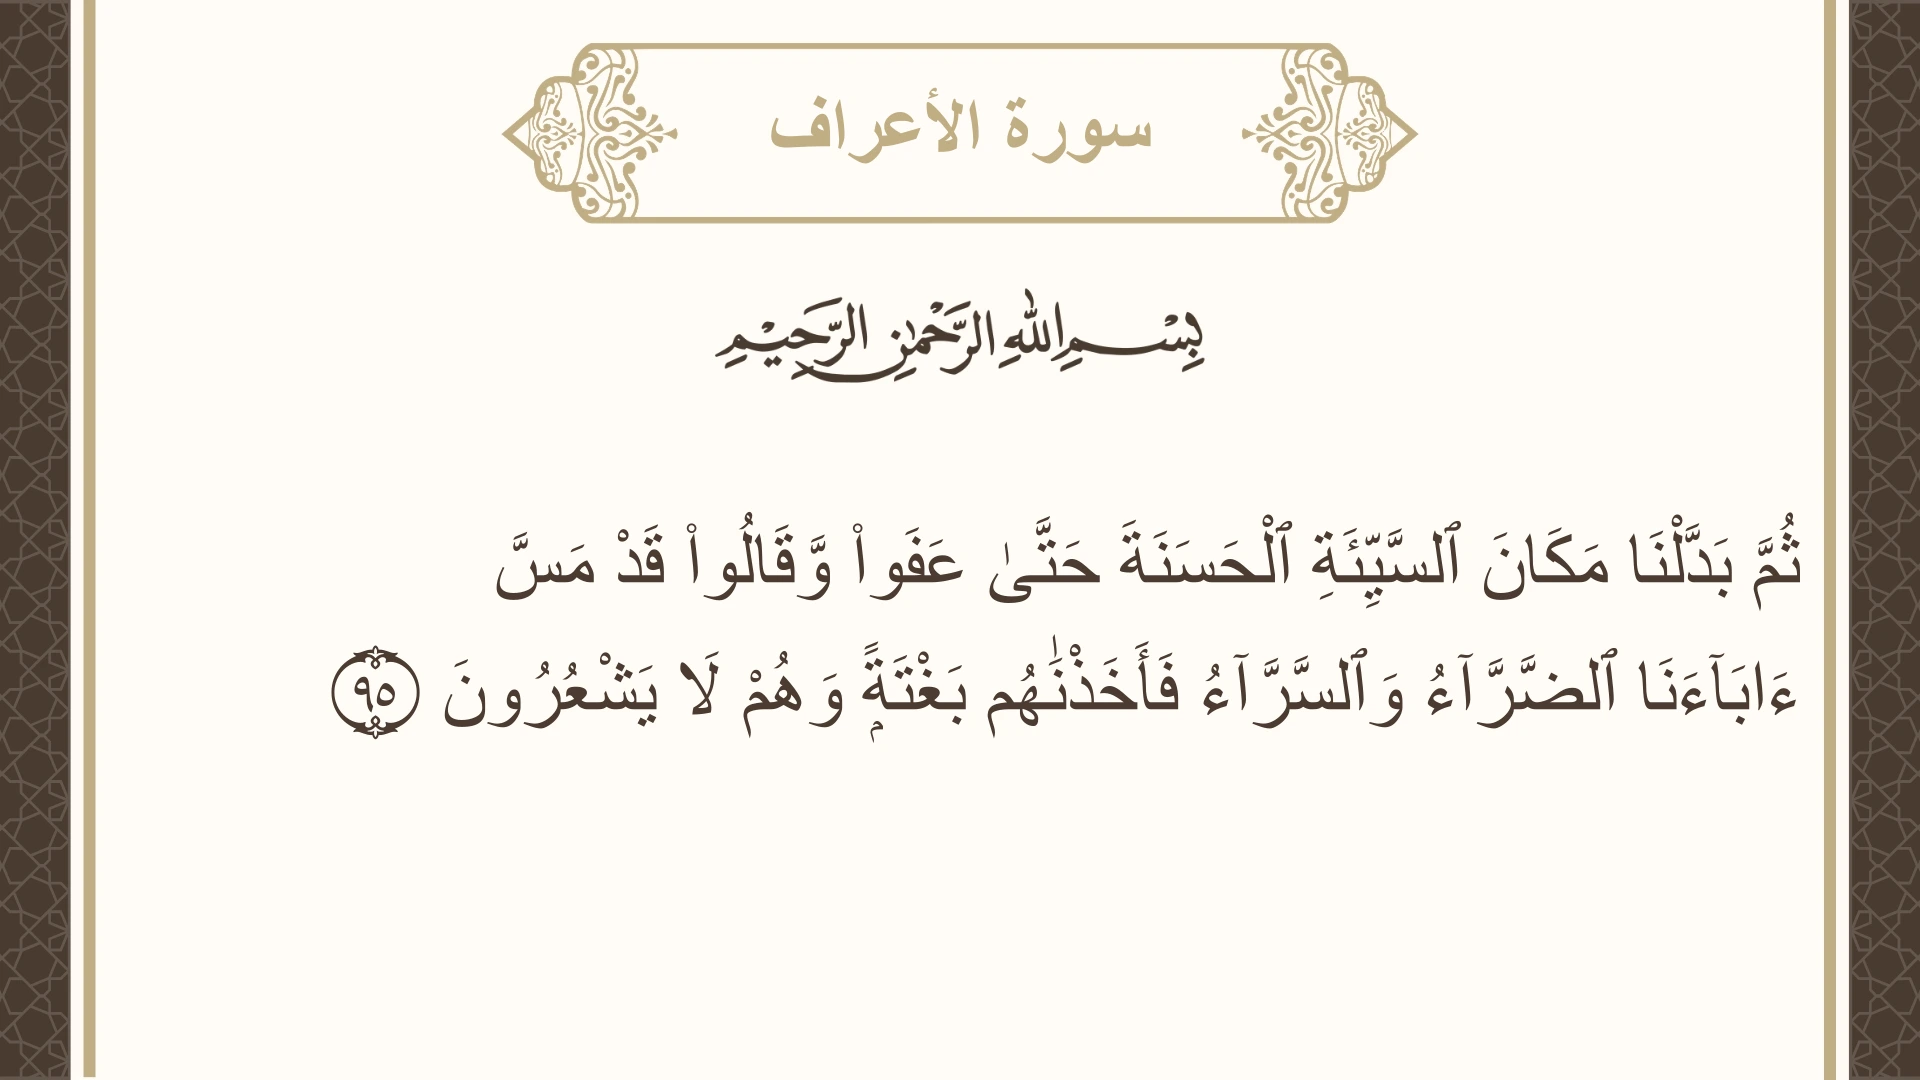 سورة الأعراف
بِسْمِ اللهِ الرَّحْمٰنِ الرَّحِيْمِ
ثُمَّ بَدَّلْنَا مَكَانَ ٱلسَّيِّئَةِ ٱلْحَسَنَةَ حَتَّىٰ عَفَوا۟ وَّقَالُوا۟ قَدْ مَسَّ
ءَابَآءَنَا ٱلضَّرَّآءُ وَٱلسَّرَّآءُ فَأَخَذْنَٰهُم بَغْتَةًۭ وَهُمْ لَا يَشْعُرُونَ ٩٥